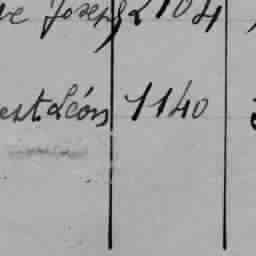 Joseph 2104
est Léon 1140